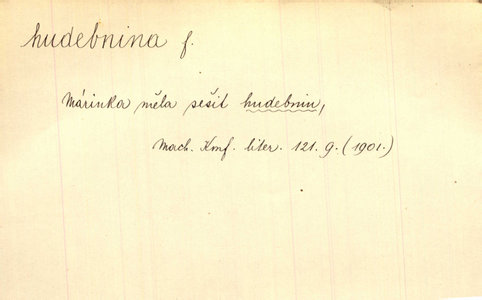 hudebnina f.
Márinka měla sešit hudebnin,
Mach. Konf. liter. 121. 9. (1901.)